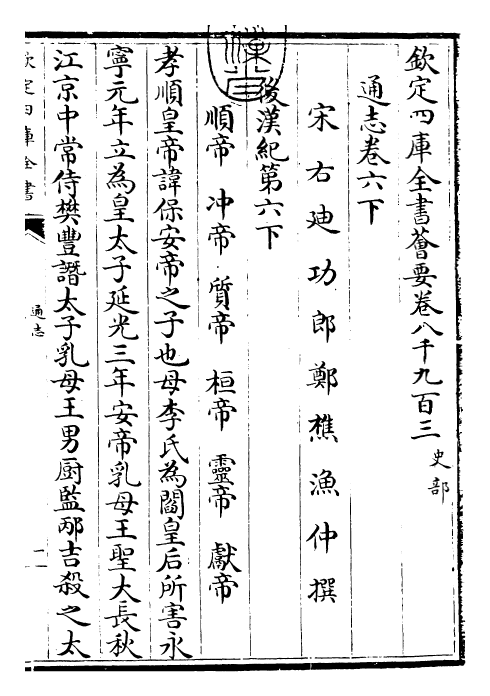 欽定四庫全書薈要卷八千九百三 史部
通志卷六下
宋右迪功郎鄭樵漁仲撰
後漢紀第六下
順帝 沖帝 質帝 桓帝 靈帝 獻帝
孝順皇帝諱保安帝之子也母李氏為閻皇后所害永
寧元年立為皇太子延光三年安帝乳母王聖大長秋
江京中常侍樊豐譖太子乳母王男厨監邴吉殺之太
欽定四庫全書
通志
一